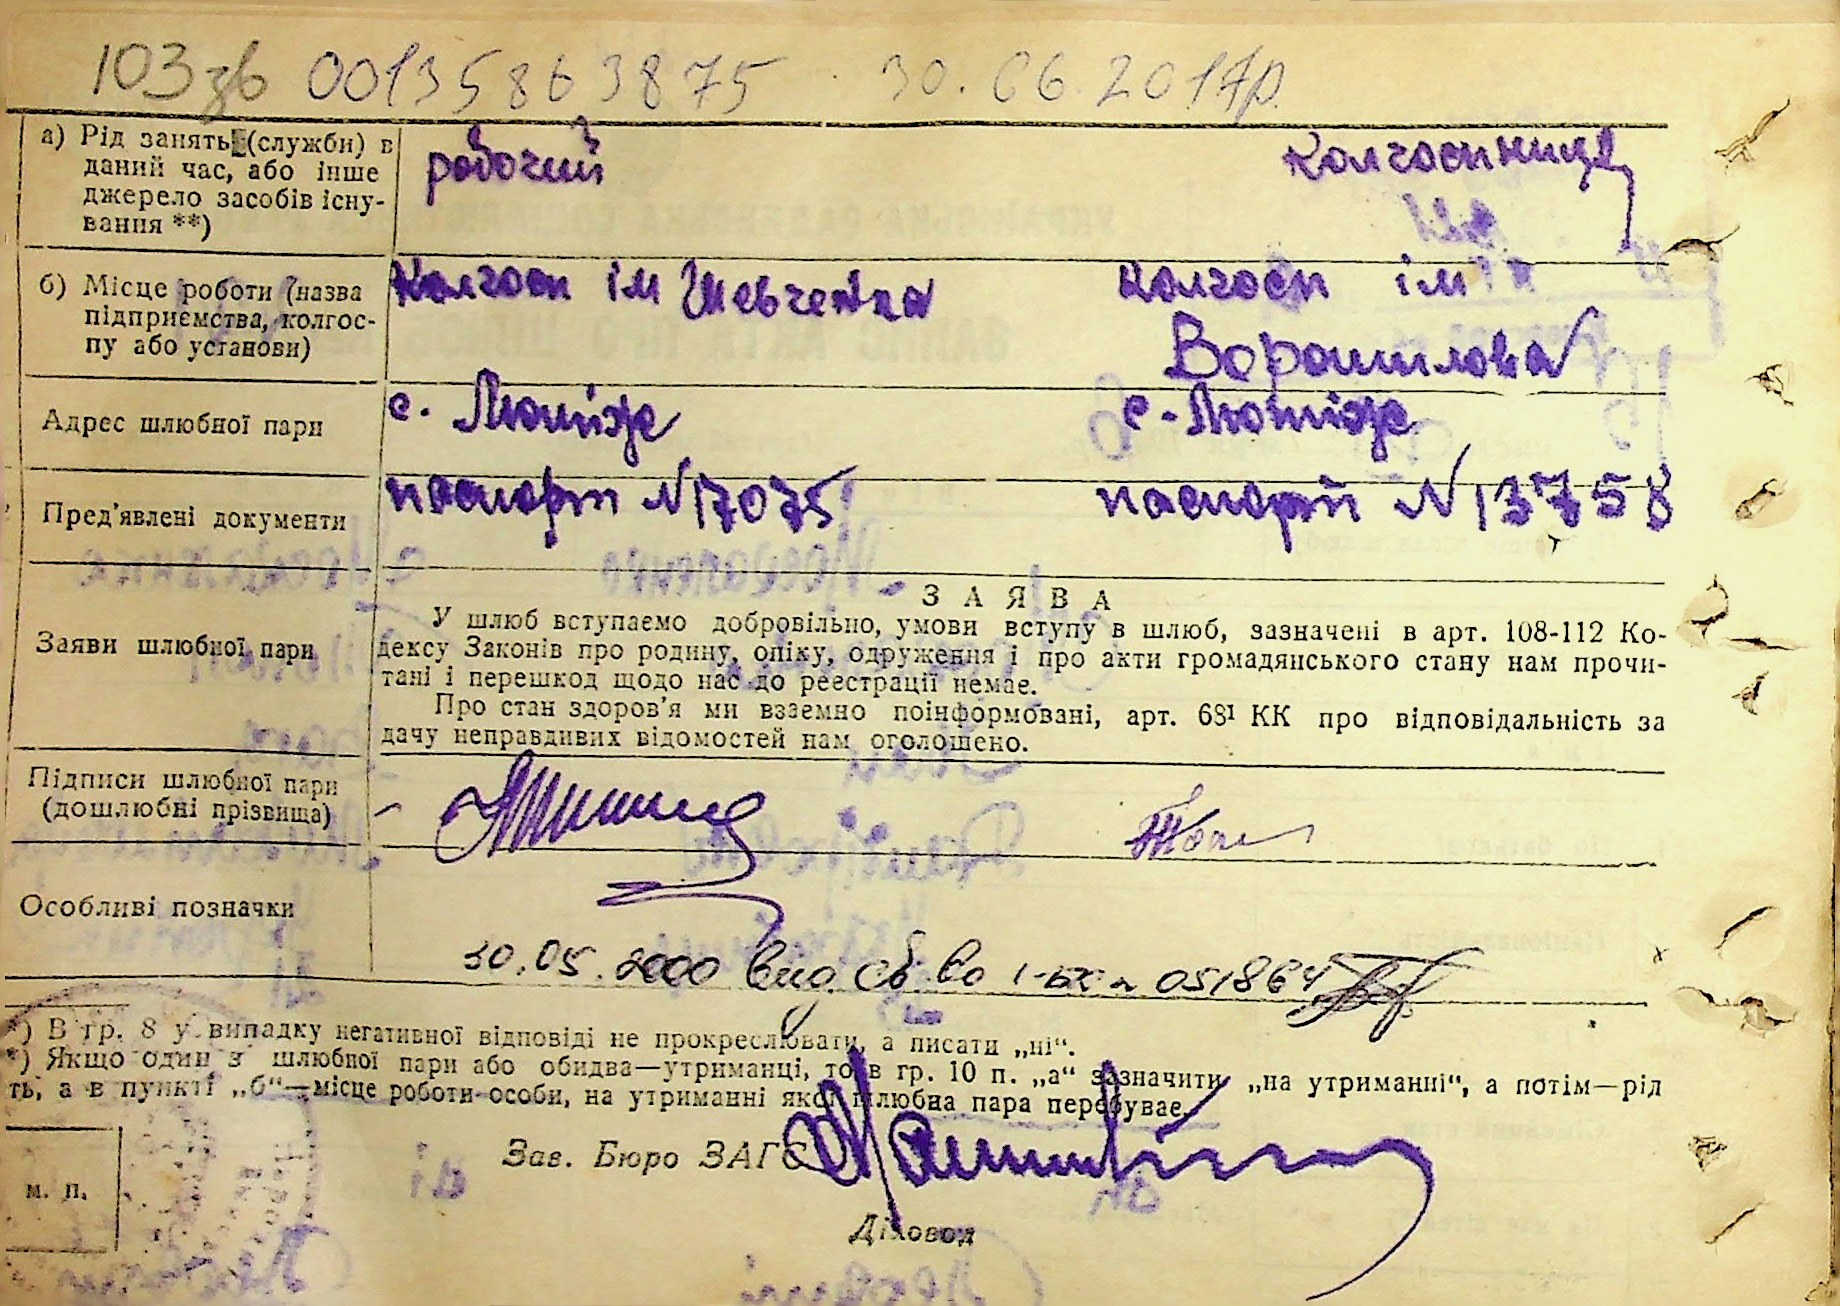 103зв 00135863875 30.06.2017р.
а) Рід занять (служби) в даний час, або інше джерело засобів існу-вання **)
робочий
колгоспниця
б) Місце роботи (назва підприємства, колгос-пу або установи)
колгосп ім Шевченка
колгосп ім
Ворошилова
Адрес шлюбної пари
с. Лютіж
с. Лютіж
Пред'явлені документи
паспорт №17075
паспорт №13758
Заяви шлюбної пари
ЗАЯВА
У шлюб вступаємо добровільно, умови вступу в шлюб, зазначені в арт. 108-112 Ко-
дексу Законів про родину, опіку, одруження і про акти громадянського стану нам прочи-
тані і перешкод щодо нас до реєстрації немає.
Про стан здоров'я ми взаємно поінформовані, арт. 68¹ КК про відповідальність за
дачу неправдивих відомостей нам оголошено.
Підписи шлюбної пари
(дошлюбні прізвища)
Особливі позначки
30.05.2000 вид. св-во I-БК 051864
*) В гр. 8 у випадку негативної відповіді не прокреслювати, а писати „ні“.
*) Якщо один з шлюбної пари або обидва—утриманці, то в гр. 10 п. „а“ зазначити „на утриманні“, а потім—рід
ть, а в пункті „б“—місце роботи особи, на утриманні якої шлюбна пара перебуває.
Зав. Бюро ЗАГС
м. п.
Діловод